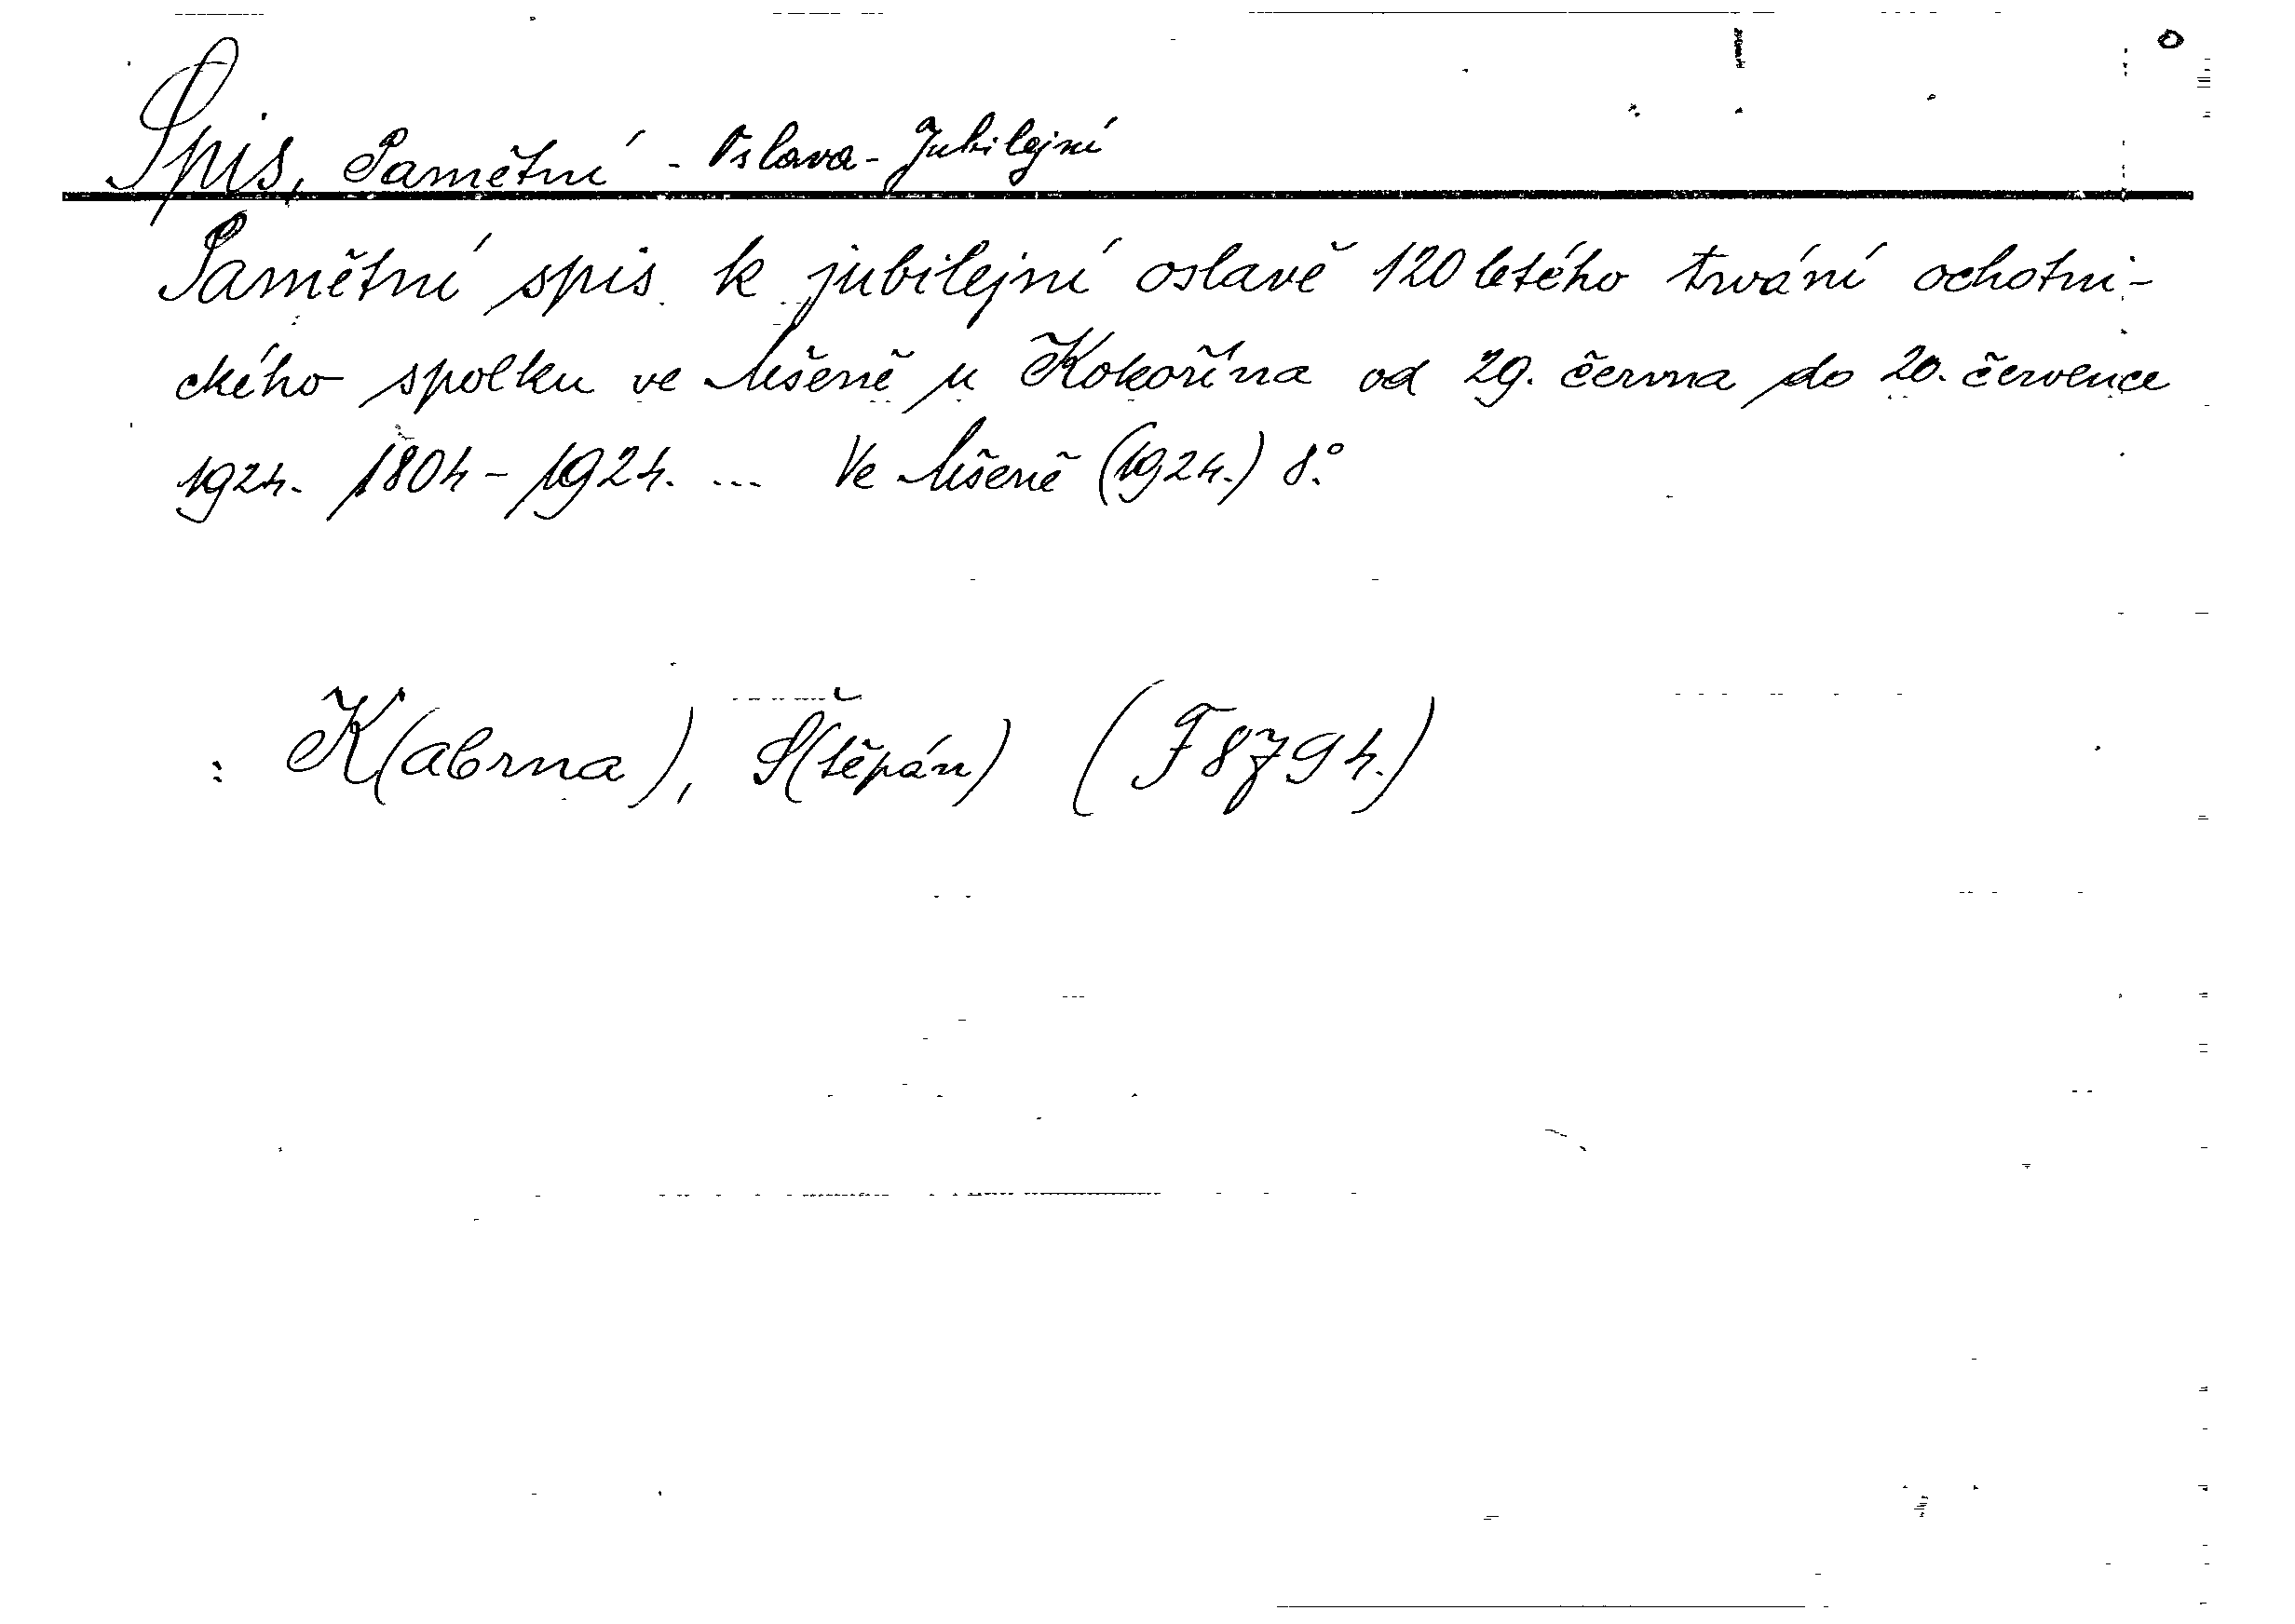 Spis, Pamětní - Oslava - Jubilejní
Pamětní spis k jubilejní oslavě 120 letého trvání ochotni-
ckého spolku ve Mšeně u Kokořína od 29. června do 20. července
1924. 1804 - 1924. ... Ve Mšeně (1924.) 8.°
: K(abrna), Š(těpán) (F 8794.)